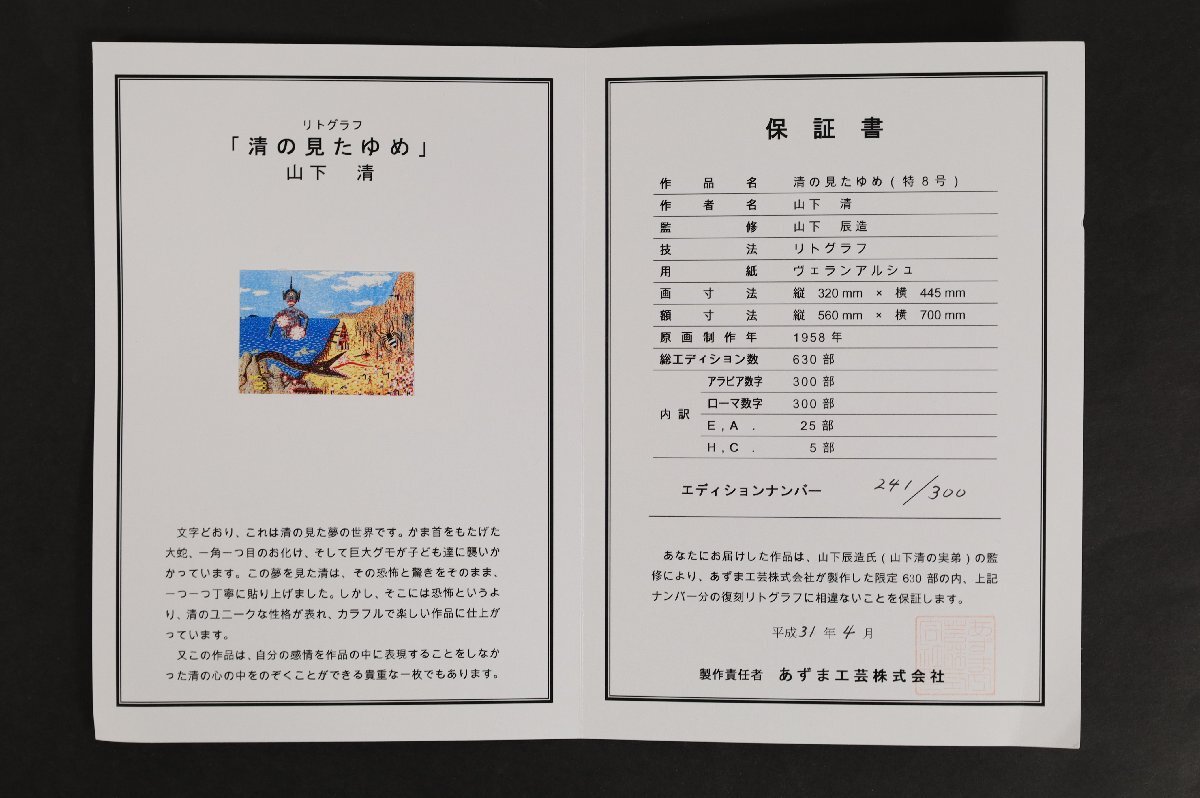 リトグラフ
「清の見たゆめ」
山下 清
文字どおり、これは清の見た夢の世界です。かま首をもたげた
大蛇、一角一つ目のお化け、そして巨大グモが子ども達に襲いか
かっています。この夢を見た清は、その恐怖と驚きをそのまま、
一つ一つ丁寧に貼り上げました。しかし、そこには恐怖というよ
り、清のユニークな性格が表れ、カラフルで楽しい作品に仕上が
っています。
又この作品は、自分の感情を作品の中に表現することをしなか
った清の心の中をのぞくことができる貴重な一枚でもあります。
保証書
作品名 清の見たゆめ(特8号)
作者名 山下 清
監修 山下 辰造
技法 リトグラフ
用紙 ヴェランアルシュ
画寸法 縦 320mm × 横 445mm
額寸法 縦 560mm × 横 700mm
原画制作年 1958年
総エディション数 630部
内訳 アラビア数字 300部
ローマ数字 300部
E,A. 25部
H,C. 5部
エディションナンバー 241/300
あなたにお届けした作品は、山下辰造氏(山下清の実弟)の監
修により、あずま工芸株式会社が製作した限定630部の内、上記
ナンバー分の復刻リトグラフに相違ないことを保証します。
平成31年4月
製作責任者 あずま工芸株式会社